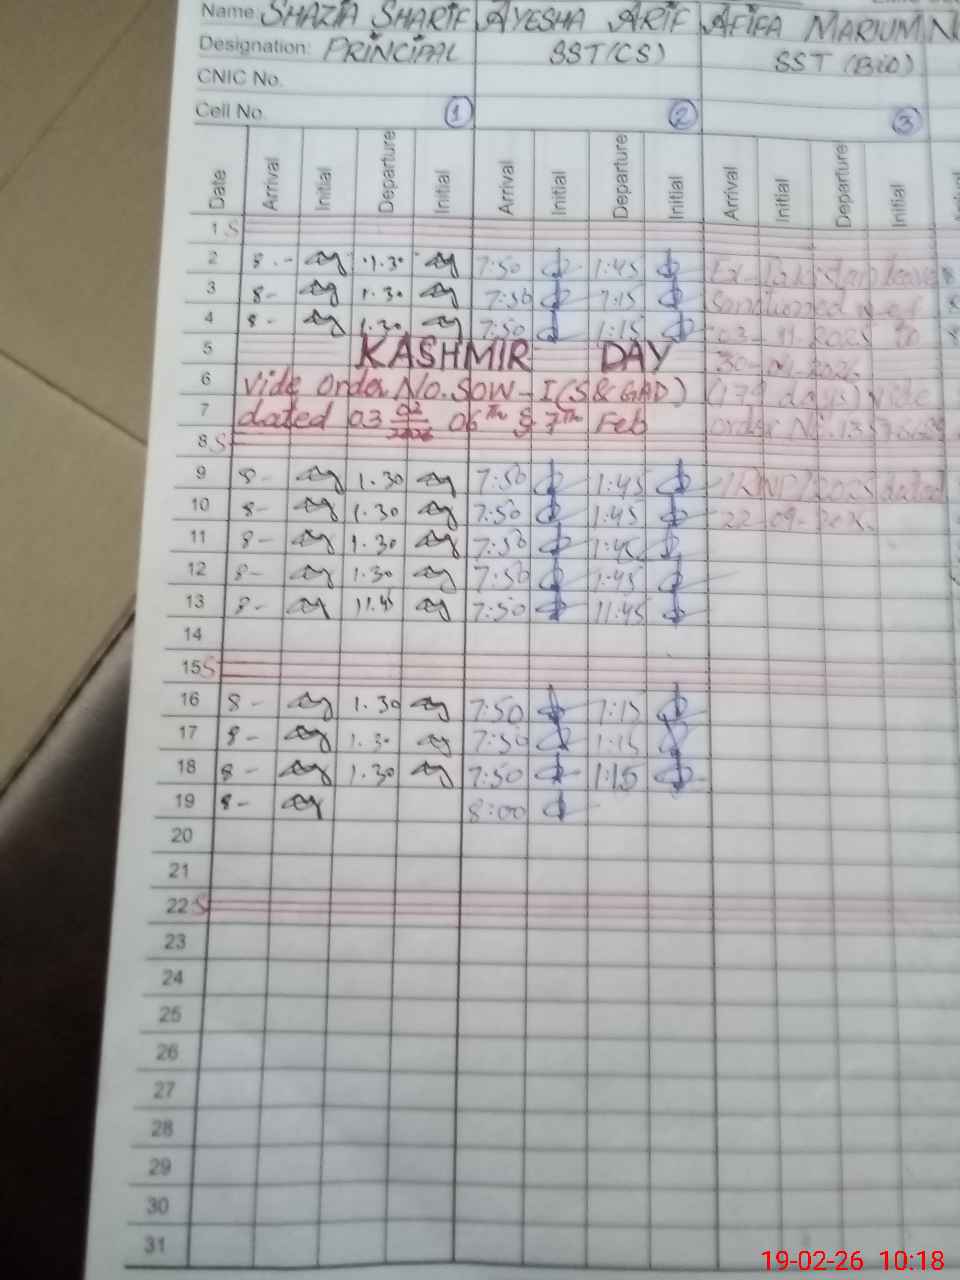 Name SHAZIA SHARIF AYESHA ARIF AFIFA MARIUM
Designation: PRINCIPAL SST(CS) SST (Bio)
CNIC No.
Cell No. 1 2 3
Date Arrival Initial Departure Initial Arrival Initial Departure Initial Arrival Initial Departure Initial
1 S
2 8.- 1.30 7:50 1:45 Ex-Pakistan leave
3 8- 1.30 7:50 1:15 Sanctioned w.e.f
4 8- 1.30 7:50 1:15 03-11-2025 to
5 KASHMIR DAY
6 vide order No. SOW-I(S&GAD) (179 days) vide
7 dated 03 02 2026 06th & 7th Feb order No.
8 S
9 8- 1.30 7:50 1:45 dated
10 8- 1.30 7:50 1:45
11 8- 1.30 7:50 1:45
12 8- 1.30 7:50 1:45
13 8- 11.45 7:50 11:45
14
15 S
16 8- 1.30 7:50 1:15
17 8- 1.30 7:50 1:15
18 8- 1.30 7:50 1:15
19 8- 8:00
20
21
22 S
23
24
25
26
27
28
29
30
31
19-02-26 10:18